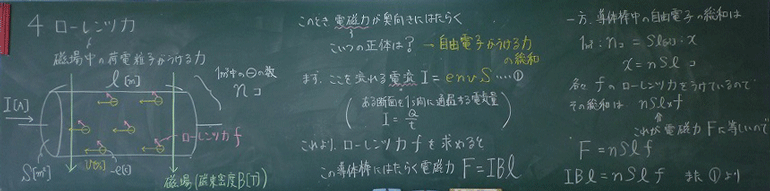 4 ローレンツ力
磁場中の荷電粒子がうける力
l[m]
1m³中の⊖の数
nコ
I[A]
ローレンツ力f
S[m²]
v[m/s]
-e[C]
磁場(磁束密度B[T])
このとき 電磁力が奥向きにはたらく
こいつの正体は? → 自由電子がうける力
の総和
まず、ここを流れる電流 I = envS …①
(ある断面を1s間に通過する電気量
I = Q/t)
これより、ローレンツ力fを求めると
この導体棒にはたらく電磁力 F = IBl
一方、導体棒中の自由電子の総和は
1m³ : nコ = Sl[m³] : x
x = nSl コ
各々fのローレンツ力をうけているので
その総和は nSl×f
これが電磁力Fに等しいので
F = nSlf
IBl = nSlf また①より